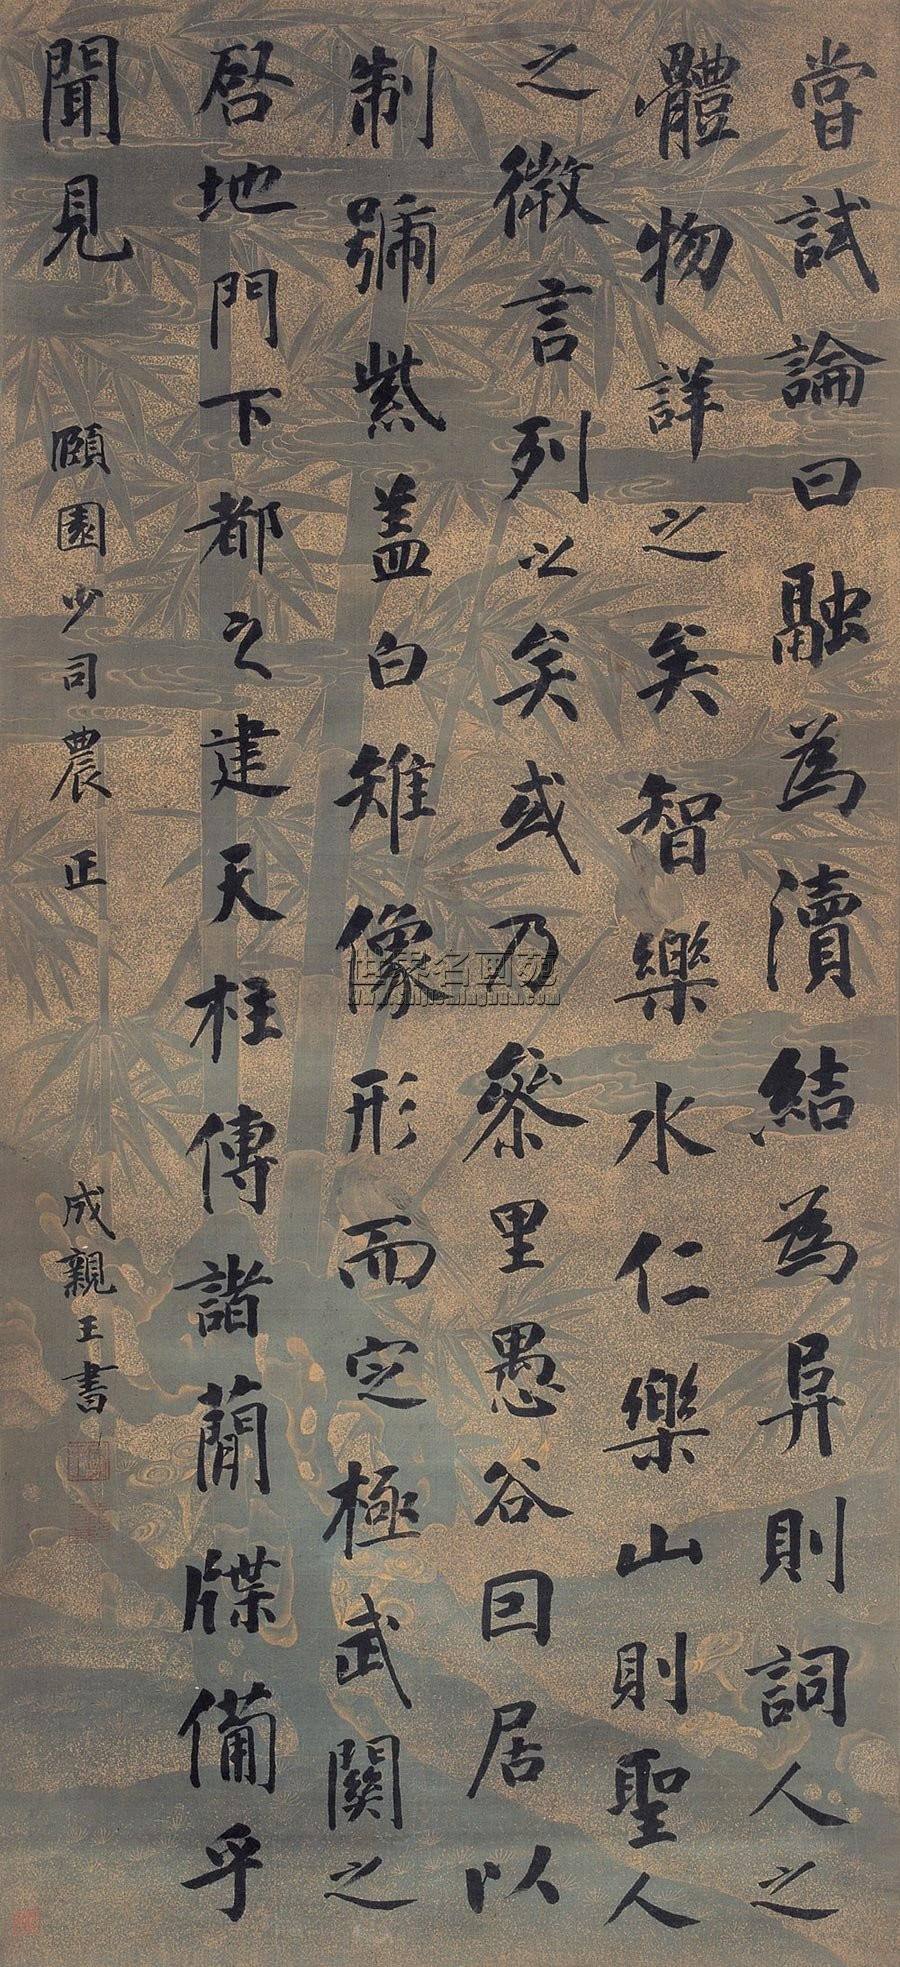 嘗試論曰融為瀆結為阜則詞人之
體物詳之矣智樂水仁樂山則聖人
之微言列以矣或乃參里愚谷曰居以
制號紫盖白雉像形而定極武關之
啓地門下都之建天柱傳諸蕳牒備乎
聞見
頤園少司農正
成親王書
世界名画苑